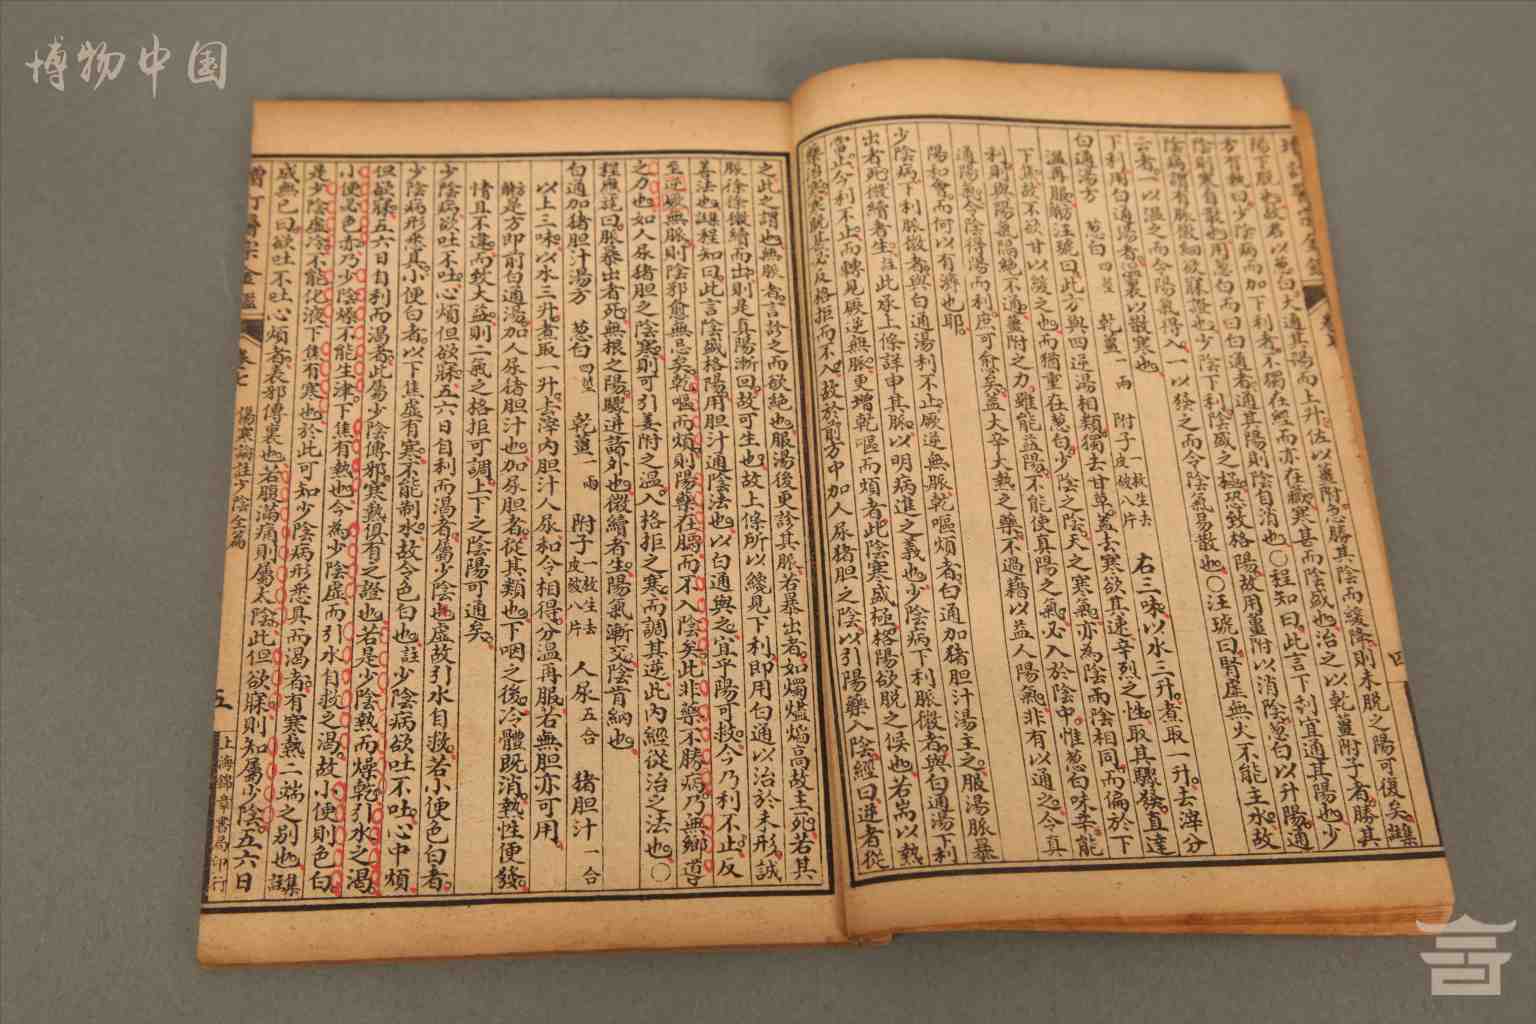 陽下脫也故君以葱白大通其陽而上升佐以薑附急勝其陰而緩降則未脫之陽可復矣註集
方有執曰少陰病而加下利者不獨在經而亦在臟寒甚而陰盛也治之以乾薑附子者勝其
陰則寒自散也用葱白而曰白通者通其陽則陰自消也○程知曰此言下利宜通其陽也少
陰病謂有脈微細欲寐證也少陰下利陰盛之極恐致格陽故用薑附以消陰葱白以升陽通
云者一以溫之而令陽氣得入一以發之而令陰氣易散也○汪琥曰腎虛無火不能主水故
下利用白通湯者溫裏以散寒也
白通湯方 葱白四莖 乾薑一兩 附子一枚生去皮破八片 右三味以水三升煮取一升去滓分
溫再服註方汪琥曰此方與四逆湯相類獨去甘草蓋去寒欲其速辛烈之性取其驟發直達
下焦故不欲甘以緩之也而猶重在葱白少陰之陰天之寒氣亦為陰兩陰相同而偏於下
利則與陽氣隔絕不通薑附之力雖能益陽不能使真陽之氣必入於陰中惟葱白味辛能
通陽氣令陰得陽而利庶可愈矣蓋大辛大熱之藥不過藉以益人陽氣非有以通之令真
陽和會而何以有濟也耶
少陰病下利脈微者與白通湯利不止厥逆無脈乾嘔煩者白通加猪胆汁湯主之服湯脈暴
出者死微續者生註此承上條詳申其脈以明病進之義也少陰病下利脈微者與白通湯下利
當止今利不止而轉見厥逆無脈更增乾嘔而煩者此陰寒盛極格陽欲脫之候也若耑以熱
藥治寒寒既甚必反格拒而不入故於前方中加人尿猪胆之陰以引陽藥入陰經曰逆者從
之此之謂也無脈者言診之而欲絕也服湯後更診其脈若暴出者如燭燼焰高故主死若其
脈徐徐微續而出則是真陽漸回故可生也故上條所以纔見下利即用白通以治於未形誠
善法也註集程知曰此言陰盛格陽用胆汁通陰法也以白通與之宜乎陽可救今乃利不止反
至逆厥無脈則陰邪愈無忌矣乾嘔而煩則陽藥在膈而不入陰矣此非藥不勝病乃無鄉導
之力也如人尿猪胆之陰寒則可引姜附之溫入格拒之寒而調其逆此內經從治之法也○
程應旄曰脈暴出者死無根之陽驟迸諸外也微續者生陽氣漸交陰肯納也
白通加猪胆汁湯方 葱白四莖 乾薑一兩 附子一枚生去皮破八片 人尿五合 猪胆汁一合
以上三味以水三升煮取一升去滓內胆汁人尿和令相得分溫再服若無胆亦可用
註方是方即前白通湯加人尿猪胆汁也加尿胆者從其類也下咽之後冷體既消熱性便發
情且不違而致大益則二氣之格拒可調上下之陰陽可通矣
少陰病欲吐不吐心煩但欲寐五六日自利而渴者屬少陰也虛故引水自救若小便色白者
少陰病形悉具小便白者以下焦虛有寒不能制水故令色白也註少陰病欲吐不吐心中煩
但欲寐五六日自利而渴者此屬少陰傳邪寒熱俱有之證也若是少陰熱而燥乾引水之渴
小便必色赤乃少陰燥不能生津下焦有熱也今為少陰虛而引水自救之渴故小便則色白
是少陰虛冷不能化液下焦有寒也於此可知少陰病形悉具而渴者有寒熱二端之別也註集
成無己曰欲吐不吐心煩者表邪傳裏也若腹滿痛則屬太陰此但欲寐則知屬少陰五六日
增訂醫宗金鑑 卷七 傷寒論註少陰全篇 五 上海錦章書局印行
博物中国